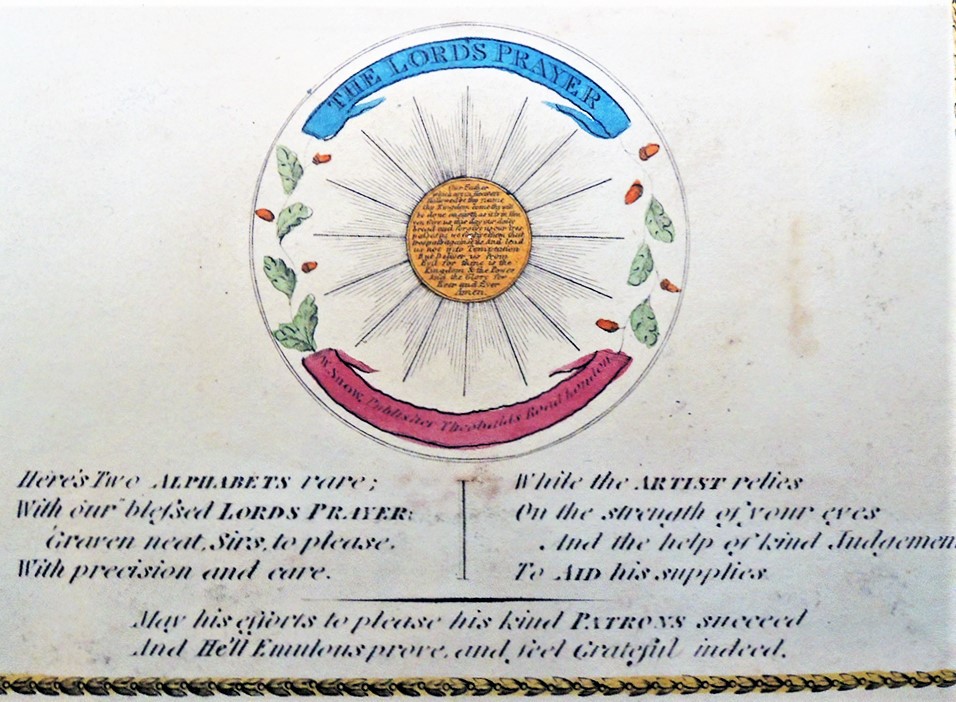 THE LORD'S PRAYER
Our Father
which art in Heaven
hallowed be thy name
thy Kingdom come thy will
be done on earth as it is in Hea
ven Give us this day our daily
bread and forgive us our tres
passes as we forgive them that
trespass against us And lead
us not into Temptation
But Deliver us from
Evil for thine is the
Kingdom & the Power
And the Glory for
Ever and Ever
Amen.
W. Snow, Publisher Theobalds Road London
Here's Two ALPHABETS rare;
With our bleſsed LORDS PRAYER:
Graven neat, Sirs, to please.
With precision and care.
While the ARTIST relies
On the strength of your eyes
And the help of kind Judgemen
To AID his supplies.
May his efforts to please his kind PATRONS succeed
And He'll Emulous prove, and feel Grateful indeed.